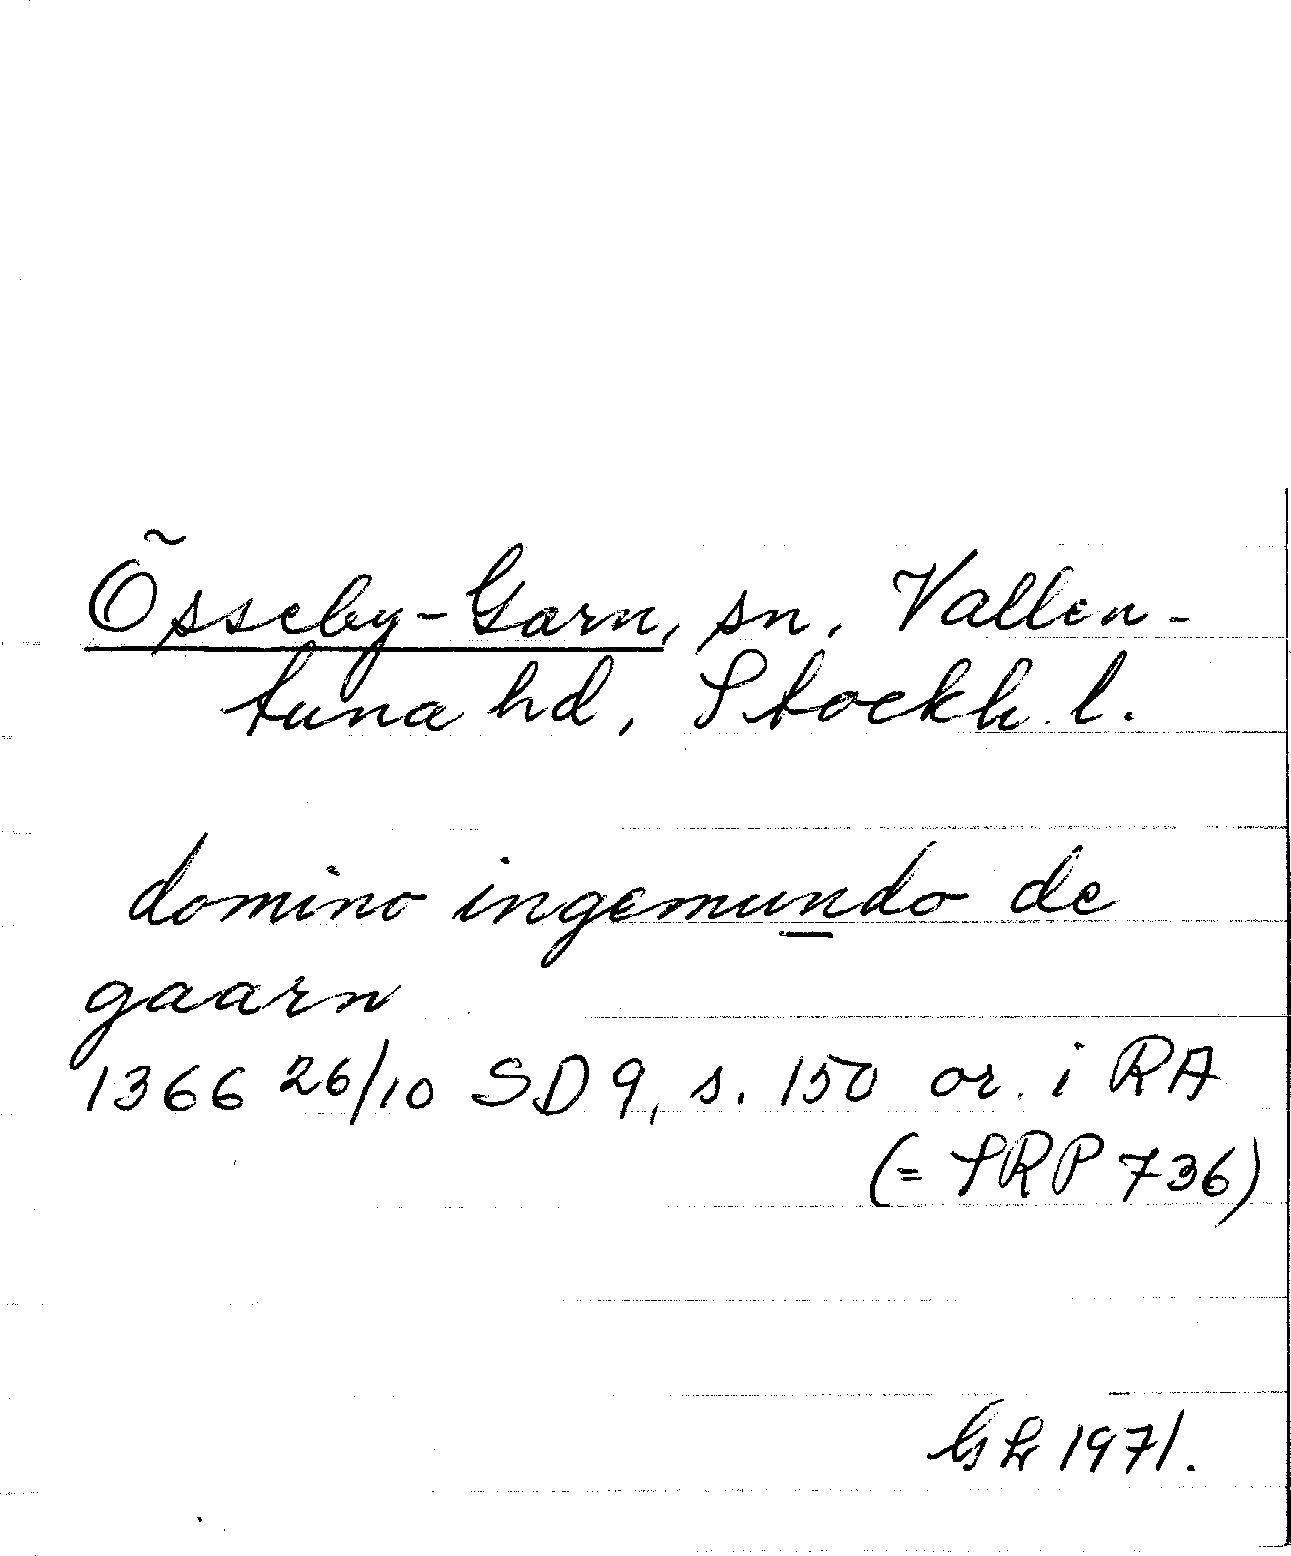 Össeby-Garn, sn, Vallen-
tuna hd, Stockh. l.
domino ingemundo de
gaarn
1366 26/10 SD 9, s. 150 or. i RA
(= SRP 736)
1971.